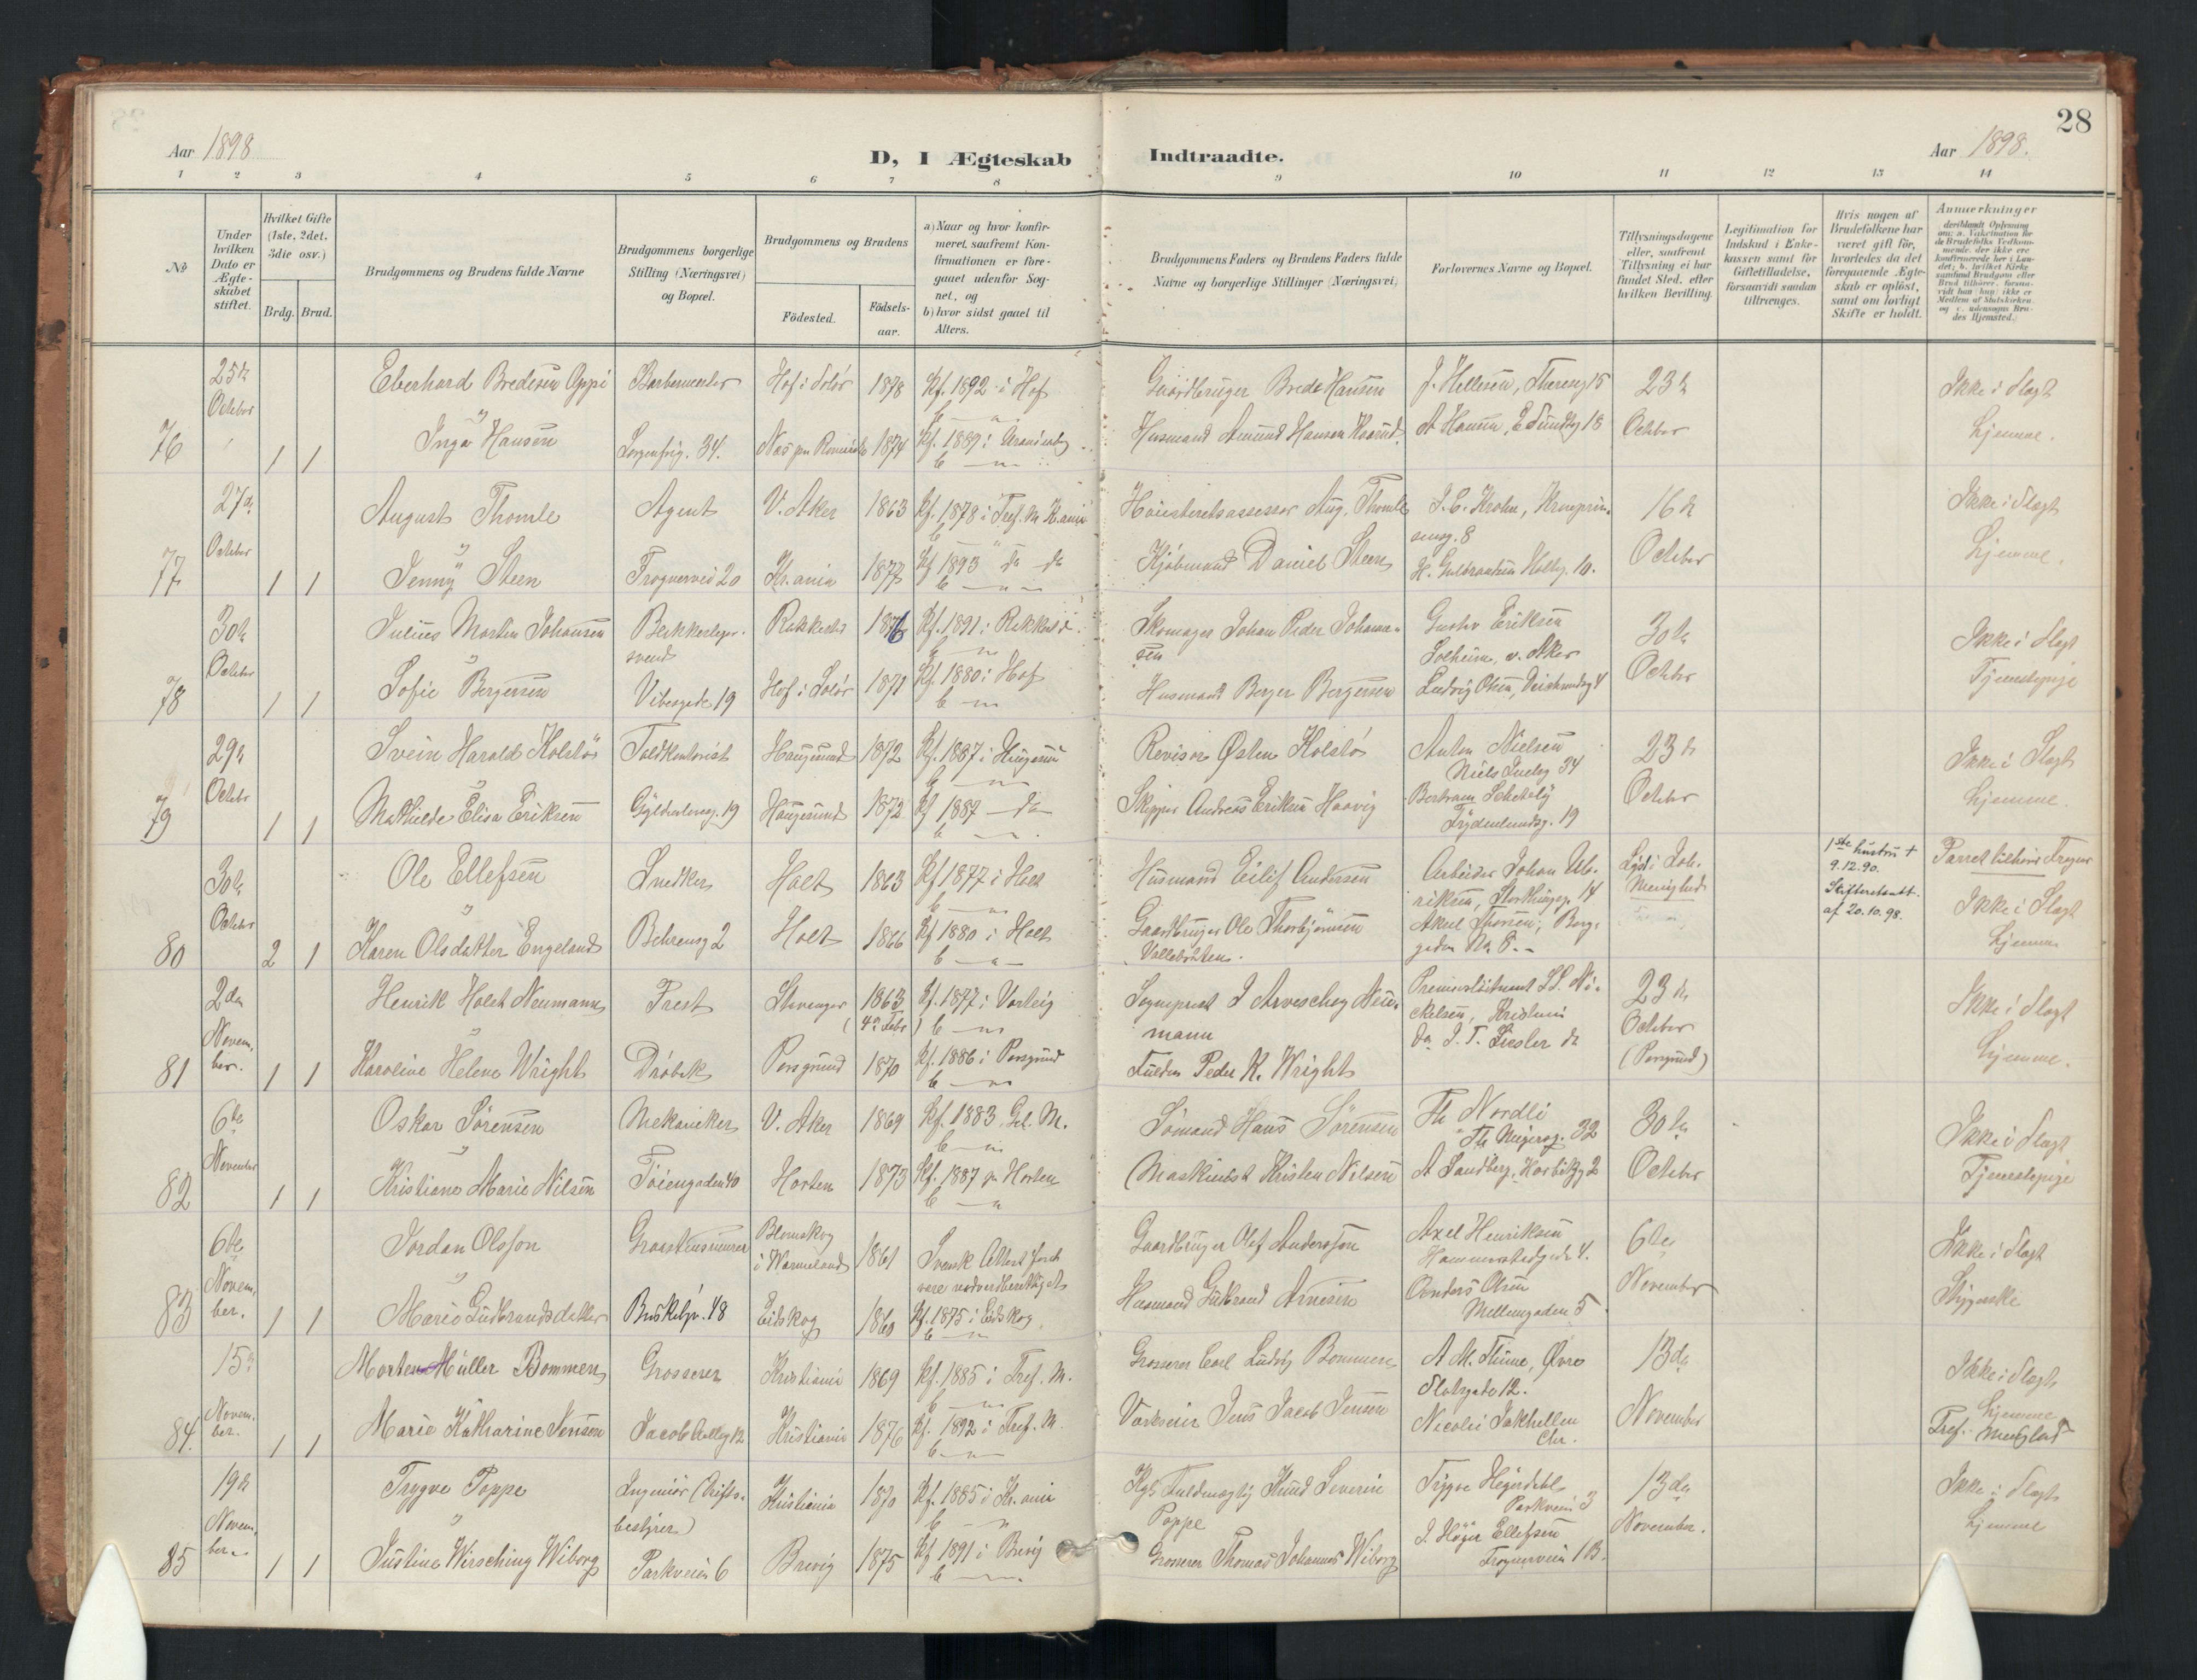 28
Aar 1898
D, I Ægteskab Indtraadte.
Aar 1898.
1 2 3 4 5 6 7 8 9 10 11 12 13 14
No
Under hvilken Dato er Ægteskabet stiftet.
Hvilket Gifte (1ste, 2det, 3die osv.)
Brdg. Brud.
Brudgommens og Brudens fulde Navne
Brudgommens borgerlige Stilling (Næringsvei) og Bopæl.
Brudgommens og Brudens
Födested.
Födsels-aar.
a) Naar og hvor konfirmeret, saafremt Konfirmationen er foregaaet udenfor Sognet, og
b) hvor sidst gaaet til Alters.
Brudgommens Faders og Brudens Faders fulde Navne og borgerlige Stillinger (Næringsvei)
Forlovernes Navne og Bopæl.
Tillysningsdagene eller, saafremt Tillysning ei har fundet Sted, efter hvilken Bevilling.
Legitimation for Indskud i Enkekassen samt for Giftetilladelse, forsaavidt saadan tiltrænges.
Hvis nogen af Brudefolkene har været gift för, hvorledes da det foregaaende Ægteskab er oplöst, samt om lovligt Skifte er holdt.
Anmerkninger
76
25de October
1 1
Eberhard Bredesen Oppi
Inga Hansen
Sorgenfrig. 34.
Hof i Solør 1878 Kf. 1892 i Hof
1874 Kf. 1889 i
Gaardbruger Brede Hansen
Husmand Amund Hansen
J. Hellesen, Theresesg 15
A Hansen, E Sundtsg 18
23de October
Ikke i Slægt
hjemme.
77
27de October
1 1
August Thomle
Jenny Steen
Agent
Frognervei 20
V. Aker 1863 Kf. 1878 i Tref. M Kr.ania
Kr.ania 1877 Kf 1893 do do
Høiesteretsassessor Aug. Thomle
Kjøbmand Daniel Steen
I. C. Krohn, Kronprinsensg. 8
H. Gulbrandsen Holbg. 10.
16de October
Ikke i Slægt
hjemme.
78
30te October
1 1
Julius Morten Johansen
Sofie Bergersen
Blikkenslagersvend
Vibesgade 19
Rakkestad 1876 Kf. 1891 i Rakkestad
Hof i Solør 1871 Kf 1880 i Hof
Skomager Johan Peder Johannesen
Husmand Berger Bergersen
Gustav Eriksen
Solheim, v. Aker
Ludvig Olsen, Deichmandsg 4
30te October
Ikke i Slægt
Tjenestepige
79
29de October
1 1
Svein Harald Kolstø
Mathilde Elisa Eriksen
Toldkontorist
Gyldenløvesg. 19
Haugesund 1872 Kf. 1887 i Haugesund
Haugesund 1872 Kf 1887 do
Revisor Østen Kolstø
Skipper Andreas Eriksen Haavig
Anton Nielsen
Niels Juelsg 34
Bertram Schetelig
Frydenlundsg. 19
23de October
Ikke i Slægt
hjemme.
80
30te October
2 1
Ole Ellefsen
Karen Olsdatter Engeland
Snedker
Behrensg 2
Holt 1863 Kf 1877 i Holt
Holt 1866 Kf 1880 i Holt
Husmand Eilif Andersen
Gaardbruger Ole Thorbjørnsen
Arbeider Johan Ulriksen, Storthingsg. 14
Aksel Thorsen, Berggaden No 8.
Lyst i Joh. Menighed
1ste hustru † 9.12.90. Skifteretsatt. af 20.10.98.
Parret tilhører Frogner
Ikke i Slægt
hjemme
81
2den November.
1 1
Henrik Holst Neumann
Karoline Helene Wright
Prest
Drøbak
Stavanger 1863 (4de Febr) Kf. 1877 i
Porsgrund 1870 Kf. 1886 i Porsgrund
Sogneprest J Neumann
Peder K. Wright
Premierløitnant Nickelsen, Kristiania
Do J. T. do
23de October (Porsgrund)
Ikke i Slægt
hjemme.
82
6te November
1 1
Oskar Sørensen
Kristiane Marie Nilsen
Mekaniker
Tøiengaden 40
V. Aker 1869 Kf. 1883, M.
Horten 1873 Kf. 1887 Horten
Sømand Hans Sørensen
Maskinist Kristen Nilsen
Th Nordli
Th Meyersg. 32
A Sandberg,
30te October
Ikke i Slægt
Tjenestepige
83
6te November.
1 1
Jordan Olsson
Marie Gudbrandsdatter
Graastensmurer
48
Blomskog i Wärmeland 1861
Eidskog 1860 Kf. 1875 i Eidskog
Gaardbruger Olof Andersson
Husmand Gulbrand Arnesen
Axel Henriksen
Hammerstadgade 4.
Anders Olsen
Mellemgaden 5
6te November
Ikke i Slægt
84.
15de November.
1 1
Morten Müller Bommen
Marie Katharine Jensen
Grosserer
Jacob Aallsg 12
Kristiania 1869 Kf. 1885 i Tref. M.
Kristiania 1876 Kf. 1892 i Tref. M.
Grosserer Carl Ludvig Bommen
Værkseier Jens Jacob Jensen
A. M. Thune, Øvre Slotsgade 12.
Nicolai Jakhelln Chr.
13de November
Ikke i Slægt
hjemme
Tref. Menighed
85
19de November.
1 1
Trygve Poppe
Justine Wirsching Wiborg
Ingeniør (Driftsbestyrer)
Parkveien 6
Kristiania 1870 Kf. 1885 i Kr.ania
Brevig 1875 Kf 1891 i Brevig
Kgl. Fuldmægtig Knud Severin Poppe
Grosserer Thomas Johannes Wiborg
Trygve Hejerdahl
Parkveien 3
J. Høyer Ellefsen
Frognerveien 1B.
13de November.
Ikke i Slægt
hjemme